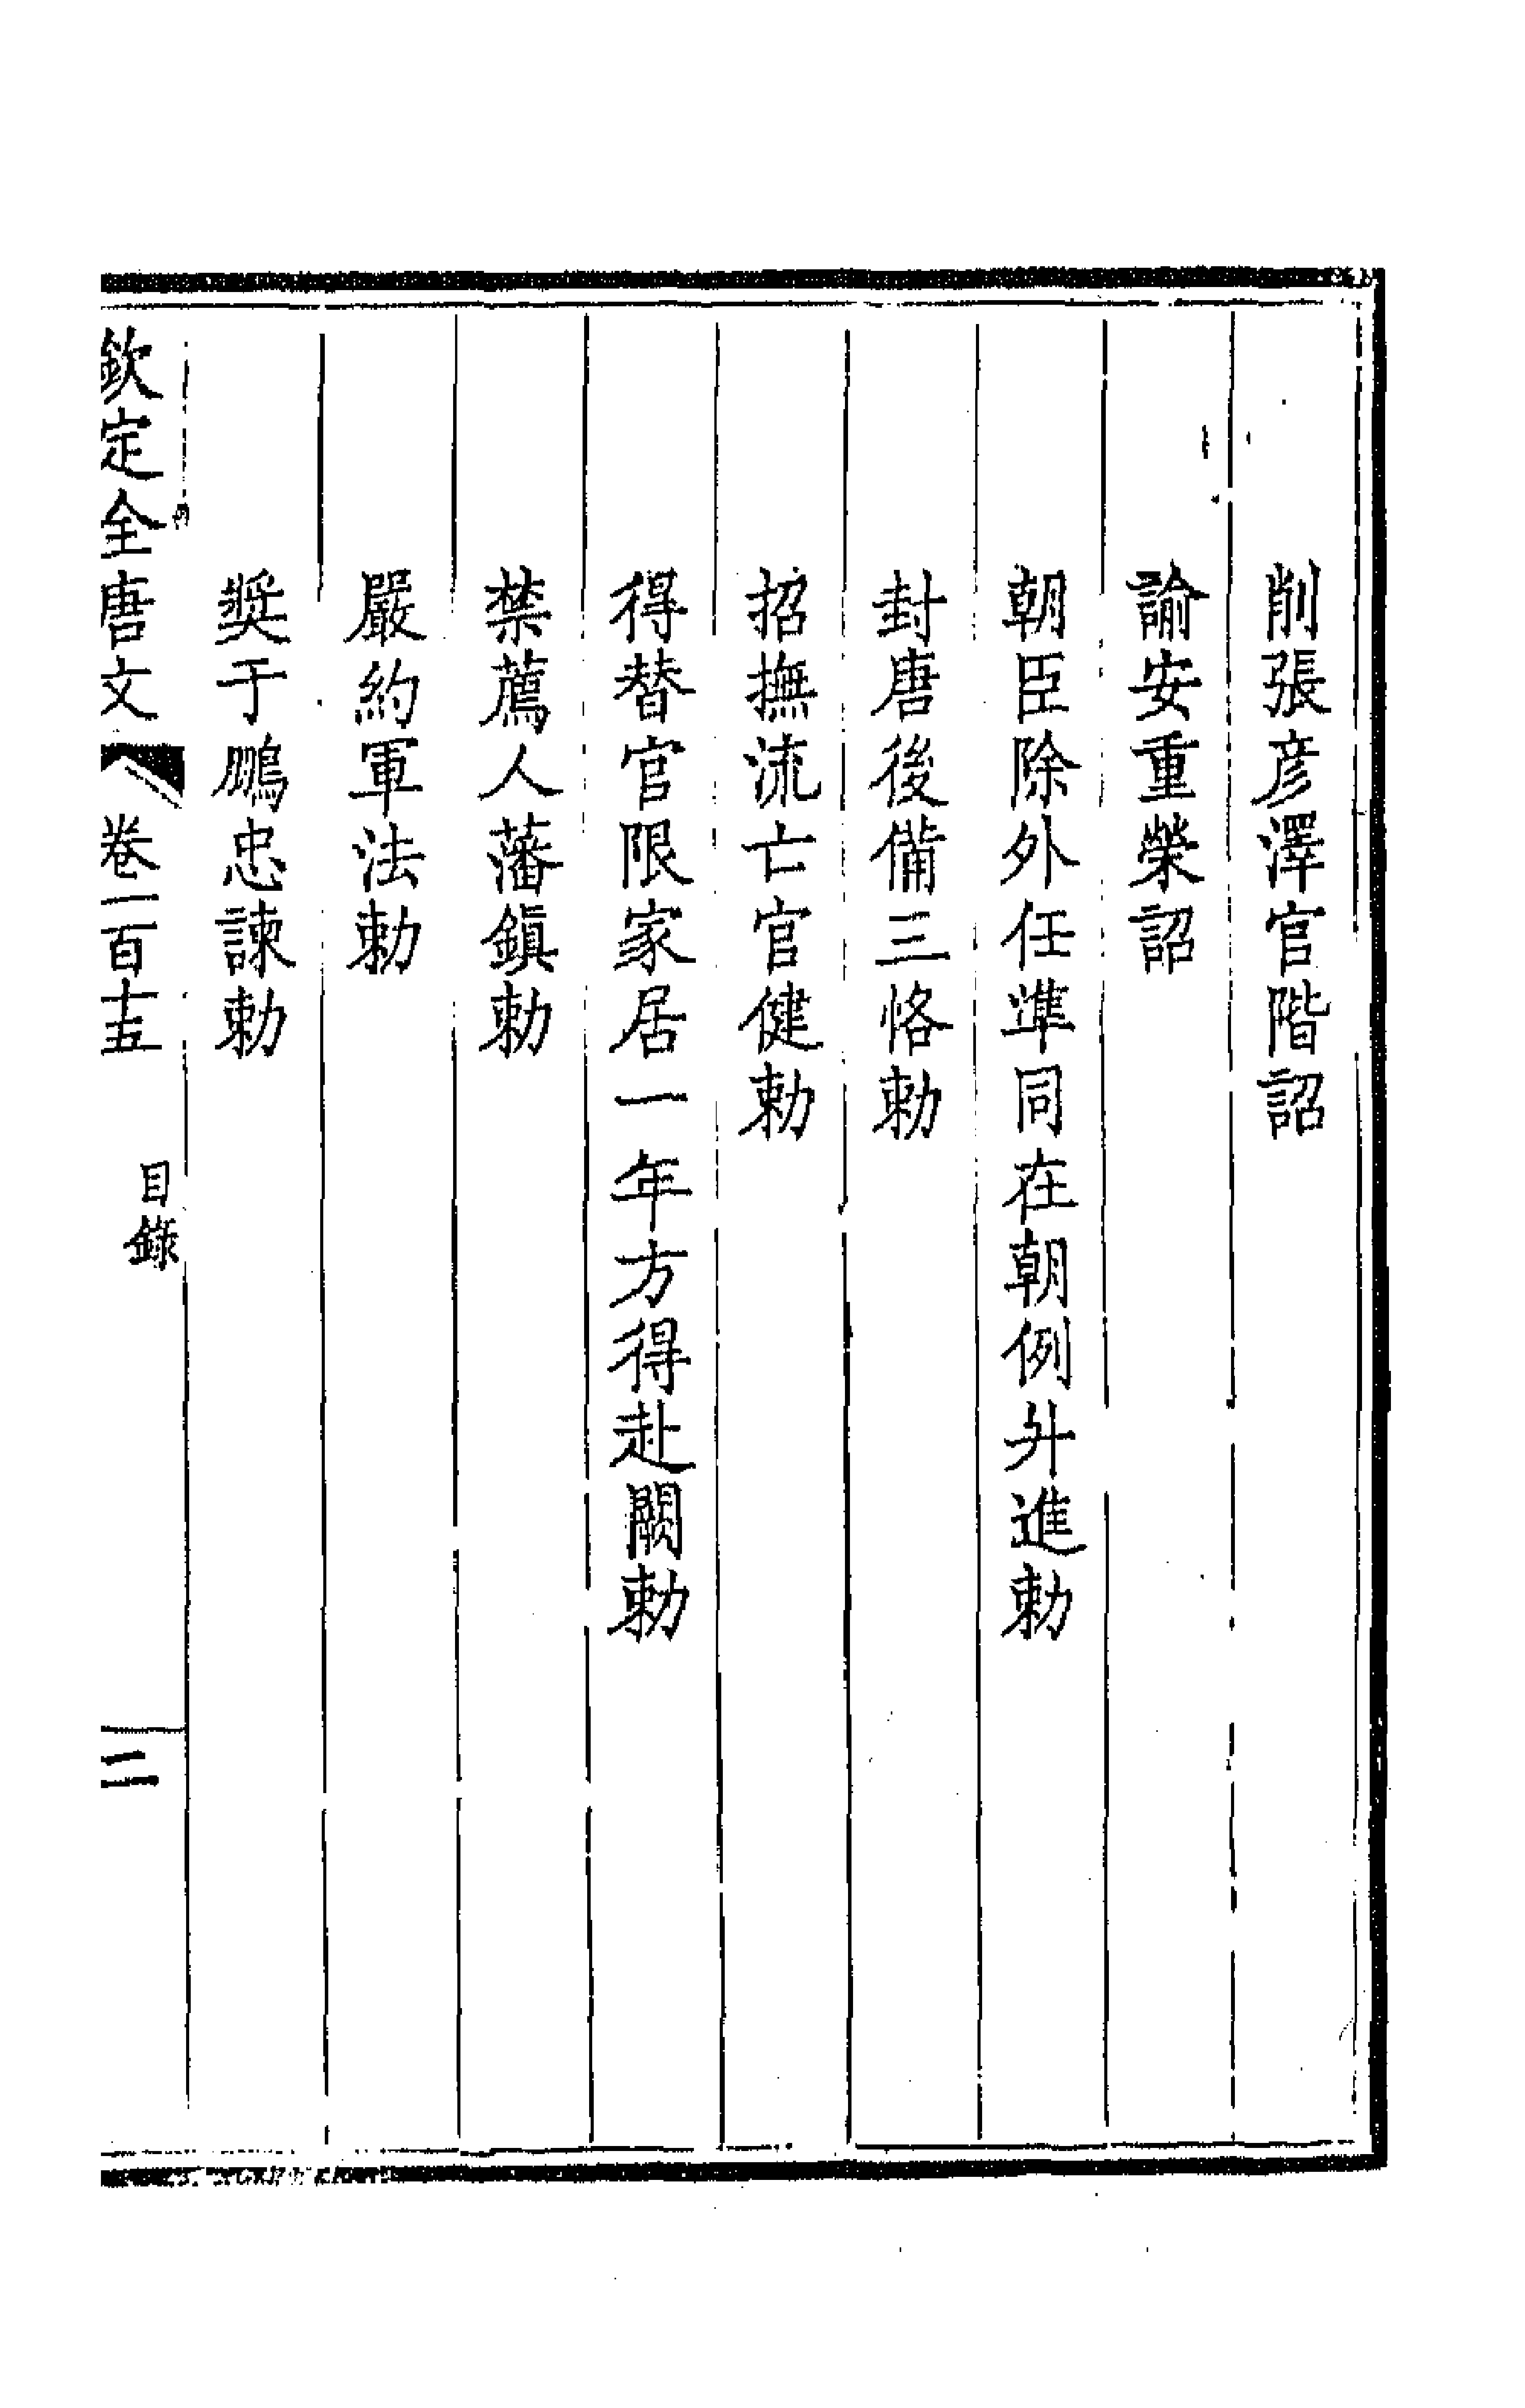 削張彥澤官階詔
諭安重榮詔
朝臣除外任準同在朝例升進勅
封唐後備三恪勅
招撫流亡官健勅
得替官限家居一年方得赴闕勅
禁薦人藩鎭勅
嚴約軍法勅
奬于鵬忠諫勅
欽定全唐文 卷一百十五 目錄 二